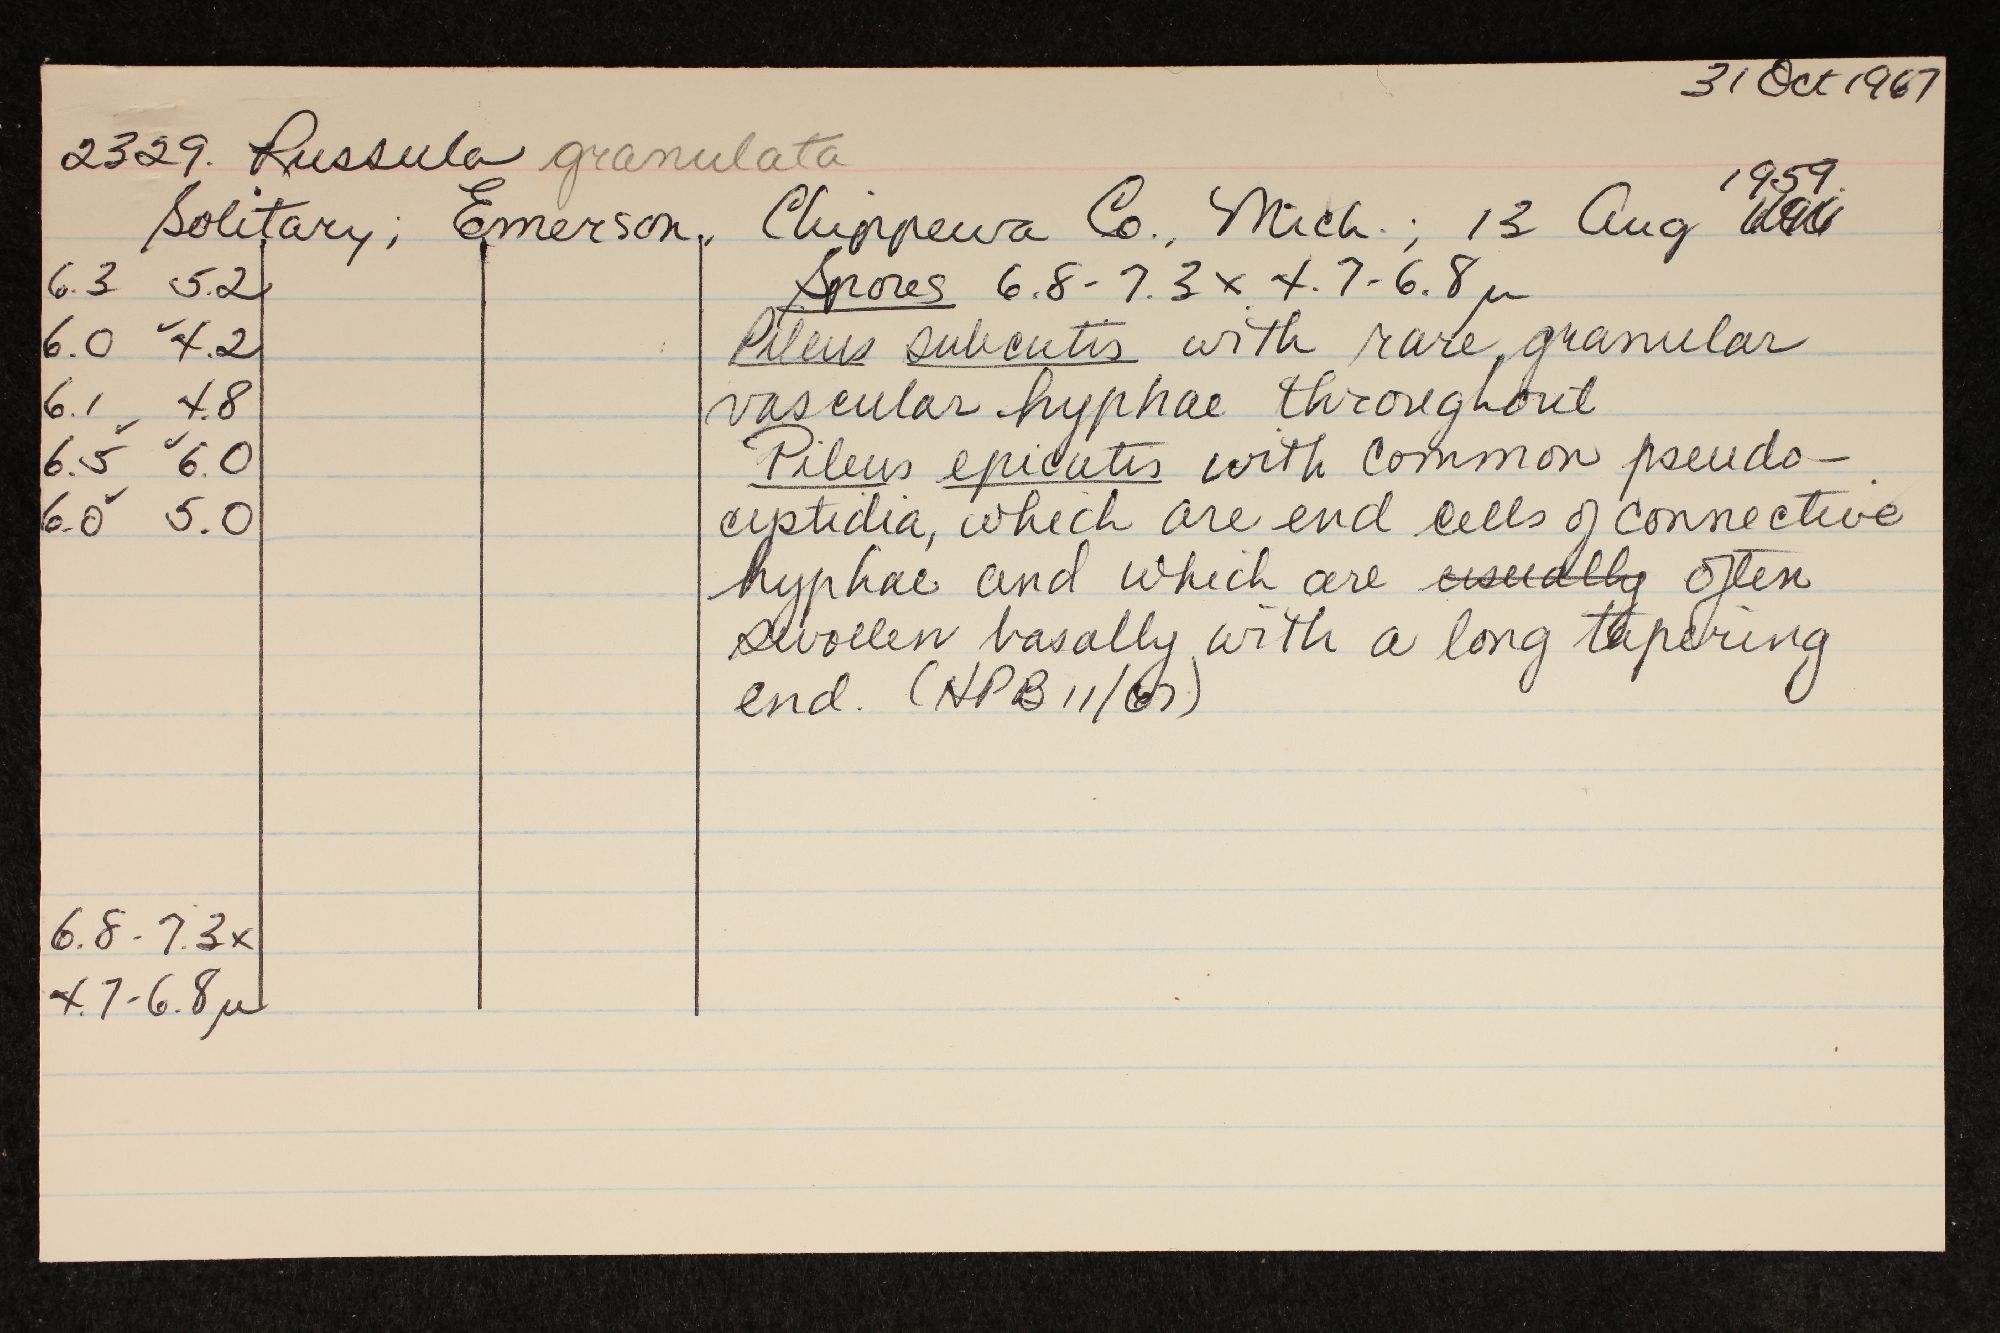 31 Oct 1967
2329. Russula granulata
Solitary; Emerson, Chippewa Co., Mich.; 13 Aug 1959.
6.3 5.2
6.0 ✓4.2
6.1 4.8
6.5✓ ✓6.0
6.0✓ 5.0
6.8-7.3x
4.7-6.8µ
Spores 6.8-7.3x 4.7-6.8µ
Pileus subcutis with rare granular
vascular hyphae throughout
Pileus epicutis with common pseudo-
cystidia, which are end cells of connective
hyphae and which are usually often
swollen basally with a long tapering
end. (HPB 11/67)